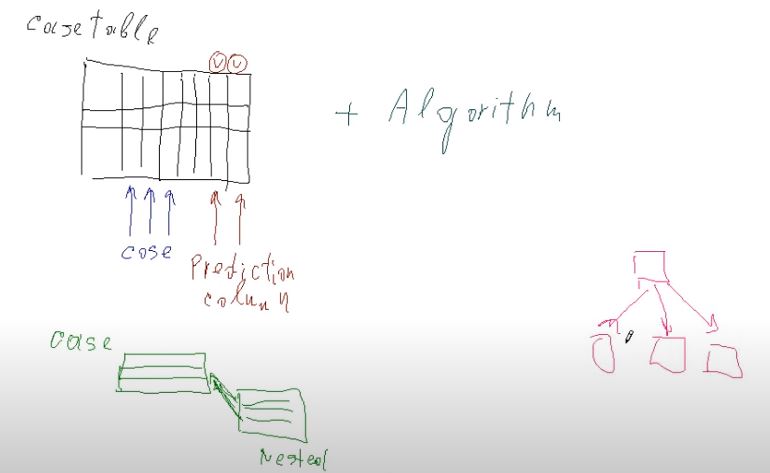 Case Table
V V
+ Algorithm
case
Prediction
column
case
Nested